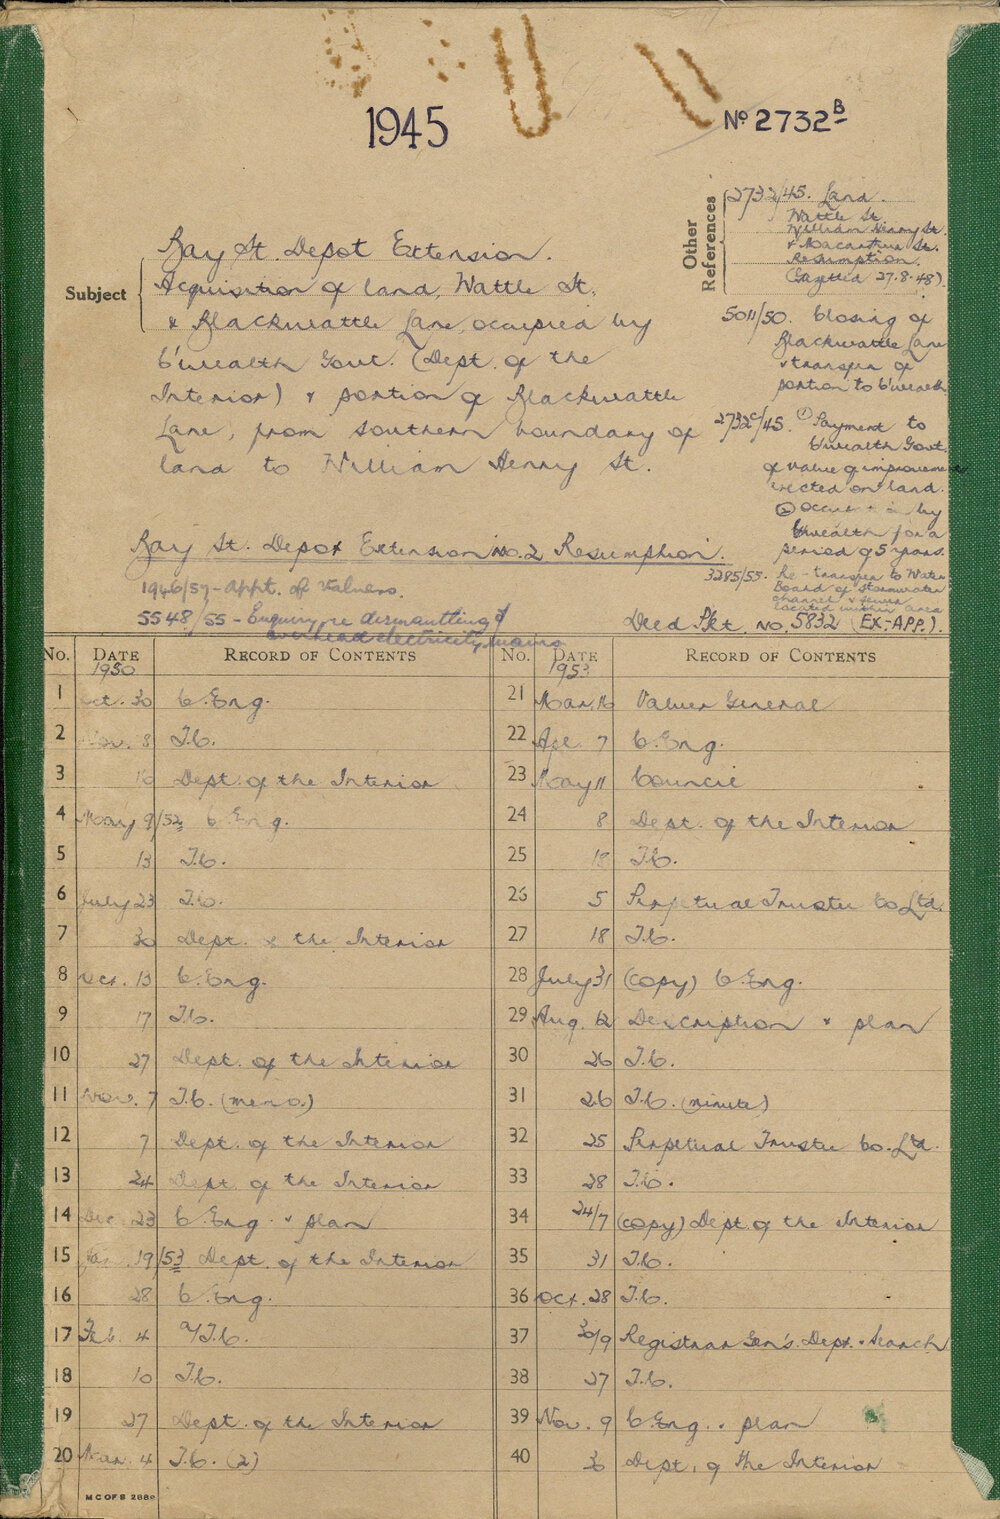 1945
No 2732B
Other References
2732/45. Land.
Wattle St.
William Henry St.
& Macarthur St.
Resumption.
(Gazetted 27.8.48).
5011/50. Closing of
Blackwattle Lane
& transfer of
portion to C'wealth
2732C/45. (1) Payment to
C'wealth Govt.
of value of improvements
erected on land.
(2) by
C'wealth for a
period of 5 years.
3285/55. Re-transfer to Water
Board of stormwater
channel & sewer
located within area
Deed Pkt No. 5832 (EX-APP.).
Subject
Bay St. Depot Extension.
Acquisition of land, Wattle St.
& Blackwattle Lane, occupied by
C'wealth Govt. (Dept. of the
Interior) & portion of Blackwattle
Lane, from southern boundary of
land to William Henry St.
Bay St. Depot Extension No. 2 Resumption.
1946/57 - Appt. of Valuers.
5548/55 - Enquiry re dismantling of
overhead electricity mains
No. DATE RECORD OF CONTENTS
1950
1 Oct. 30 C. Eng.
2 Nov. 8 T.C.
3 16 Dept. of the Interior
4 May 9/52 C. Eng.
5 13 T.C.
6 July 23 T.C.
7 30 Dept. of the Interior
8 Oct. 13 C. Eng.
9 17 T.C.
10 27 Dept. of the Interior
11 Nov. 7 T.C. (memo.)
12 7 Dept. of the Interior
13 24 Dept. of the Interior
14 Dec. 23 C. Eng. & plan
15 Jan. 19/53 Dept. of the Interior
16 28 C. Eng.
17 Feb. 4 a/T.C.
18 10 T.C.
19 27 Dept. of the Interior
20 Mar. 4 T.C. (2)
M C OF S 288C
No. DATE RECORD OF CONTENTS
1953
21 Mar. 16 Valuer General
22 Apl. 7 C. Eng.
23 May 11 Council
24 8 Dept. of the Interior
25 18 T.C.
26 5 Perpetual Trustee Co Ltd.
27 18 T.C.
28 July 31 (copy) C. Eng.
29 Aug. 12 Description & plan
30 26 T.C.
31 26 T.C. (minute)
32 25 Perpetual Trustee Co. Ltd.
33 28 T.C.
34 24/7 (copy) Dept. of the Interior
35 31 T.C.
36 Oct. 28 T.C.
37 30/9 Registrar Gen's. Dept. & Search
38 27 T.C.
39 Nov. 9 C. Eng. & plan
40 30 Dept. of the Interior